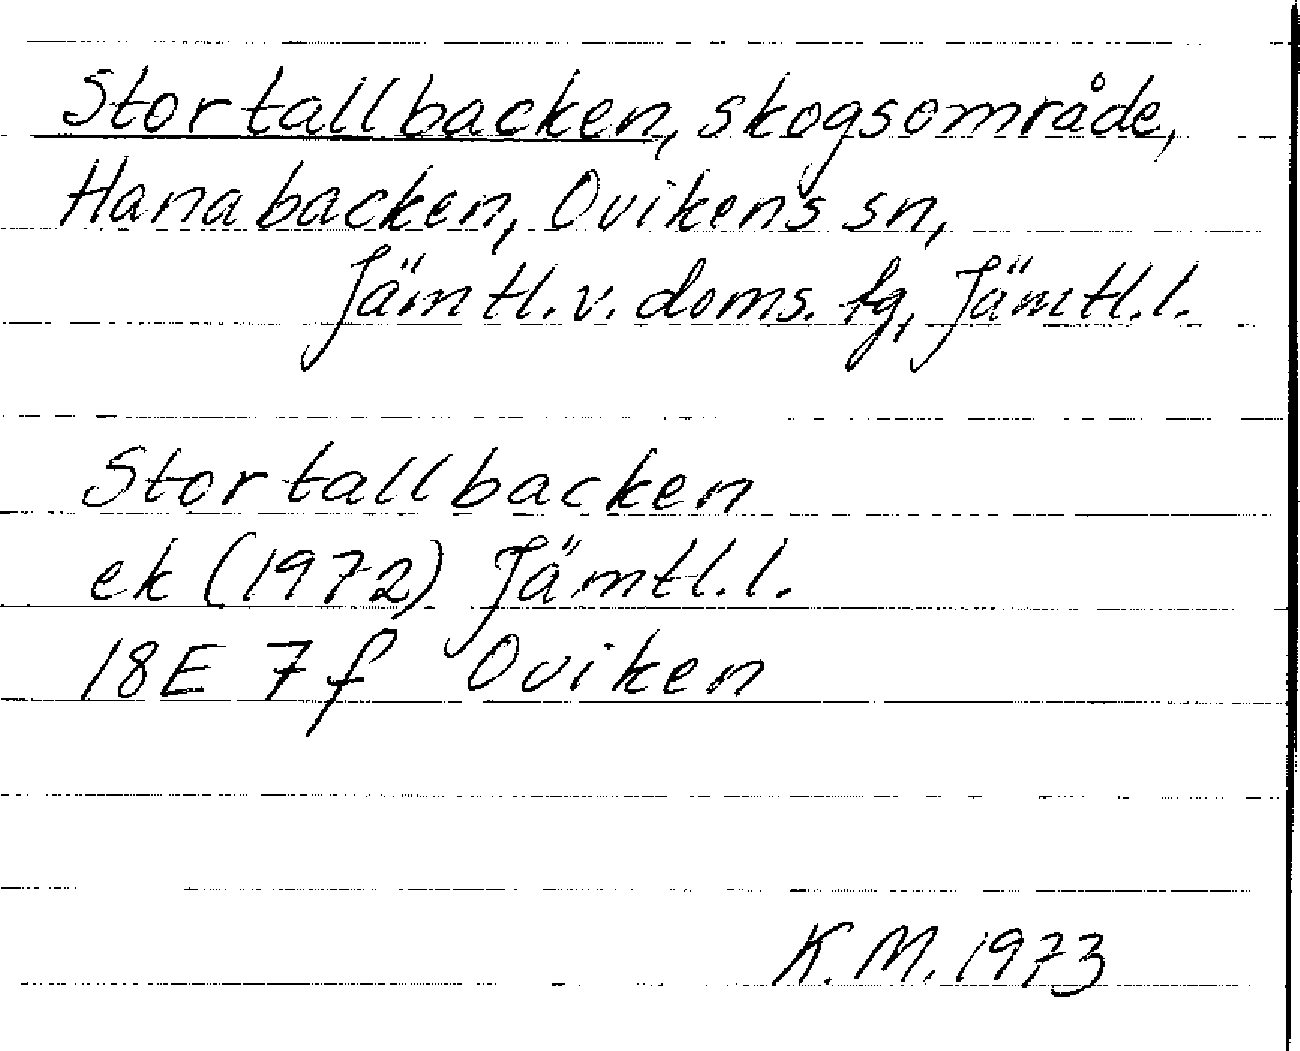 Stortallbacken, skogsområde,
Hanabacken, Ovikens sn,
Jämtl. v. doms. fg, Jämtl. l.
Stortallbacken
ek (1972) Jämtl. l.
18E 7f Oviken
K. M. 1973